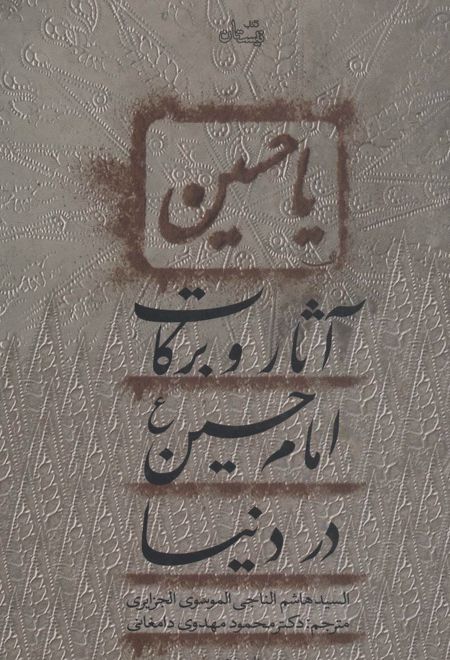 کتاب
نیستان
یا حسین
آثار و برکات
امام حسین ع
در دنیا
السید هاشم الناجی الموسوی الجزایری
مترجم: دکتر محمود مهدوی دامغانی